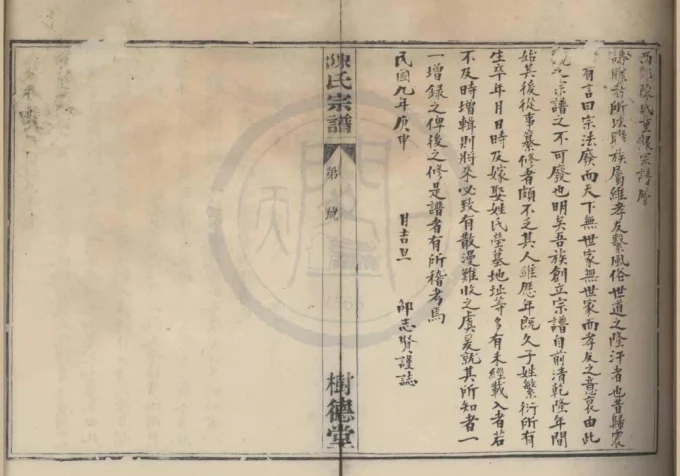 西郭陳氏重輯宗譜序
譜牒者所以聯族屬維孝友繫風俗世道之隆汙者也昔歸震
有言曰宗法廢而天下無世家無世家而孝友之意衰由此
觀之宗譜之不可廢也明矣吾族創立宗譜自前清乾隆年間
始其後從事纂修者頗不乏其人維歷年既久子姓繁衍所有
生卒年月日時及嫁娶姓氏塋墓地址等多有未經載入者若
不及時增輯則將來必致有散漫難收之虞爰就其所知者一
一增錄之俾後之修是譜者有所稽考焉
民國九年庚申 月吉旦 邰志賢謹誌
陳氏宗譜
第 號
樹德堂